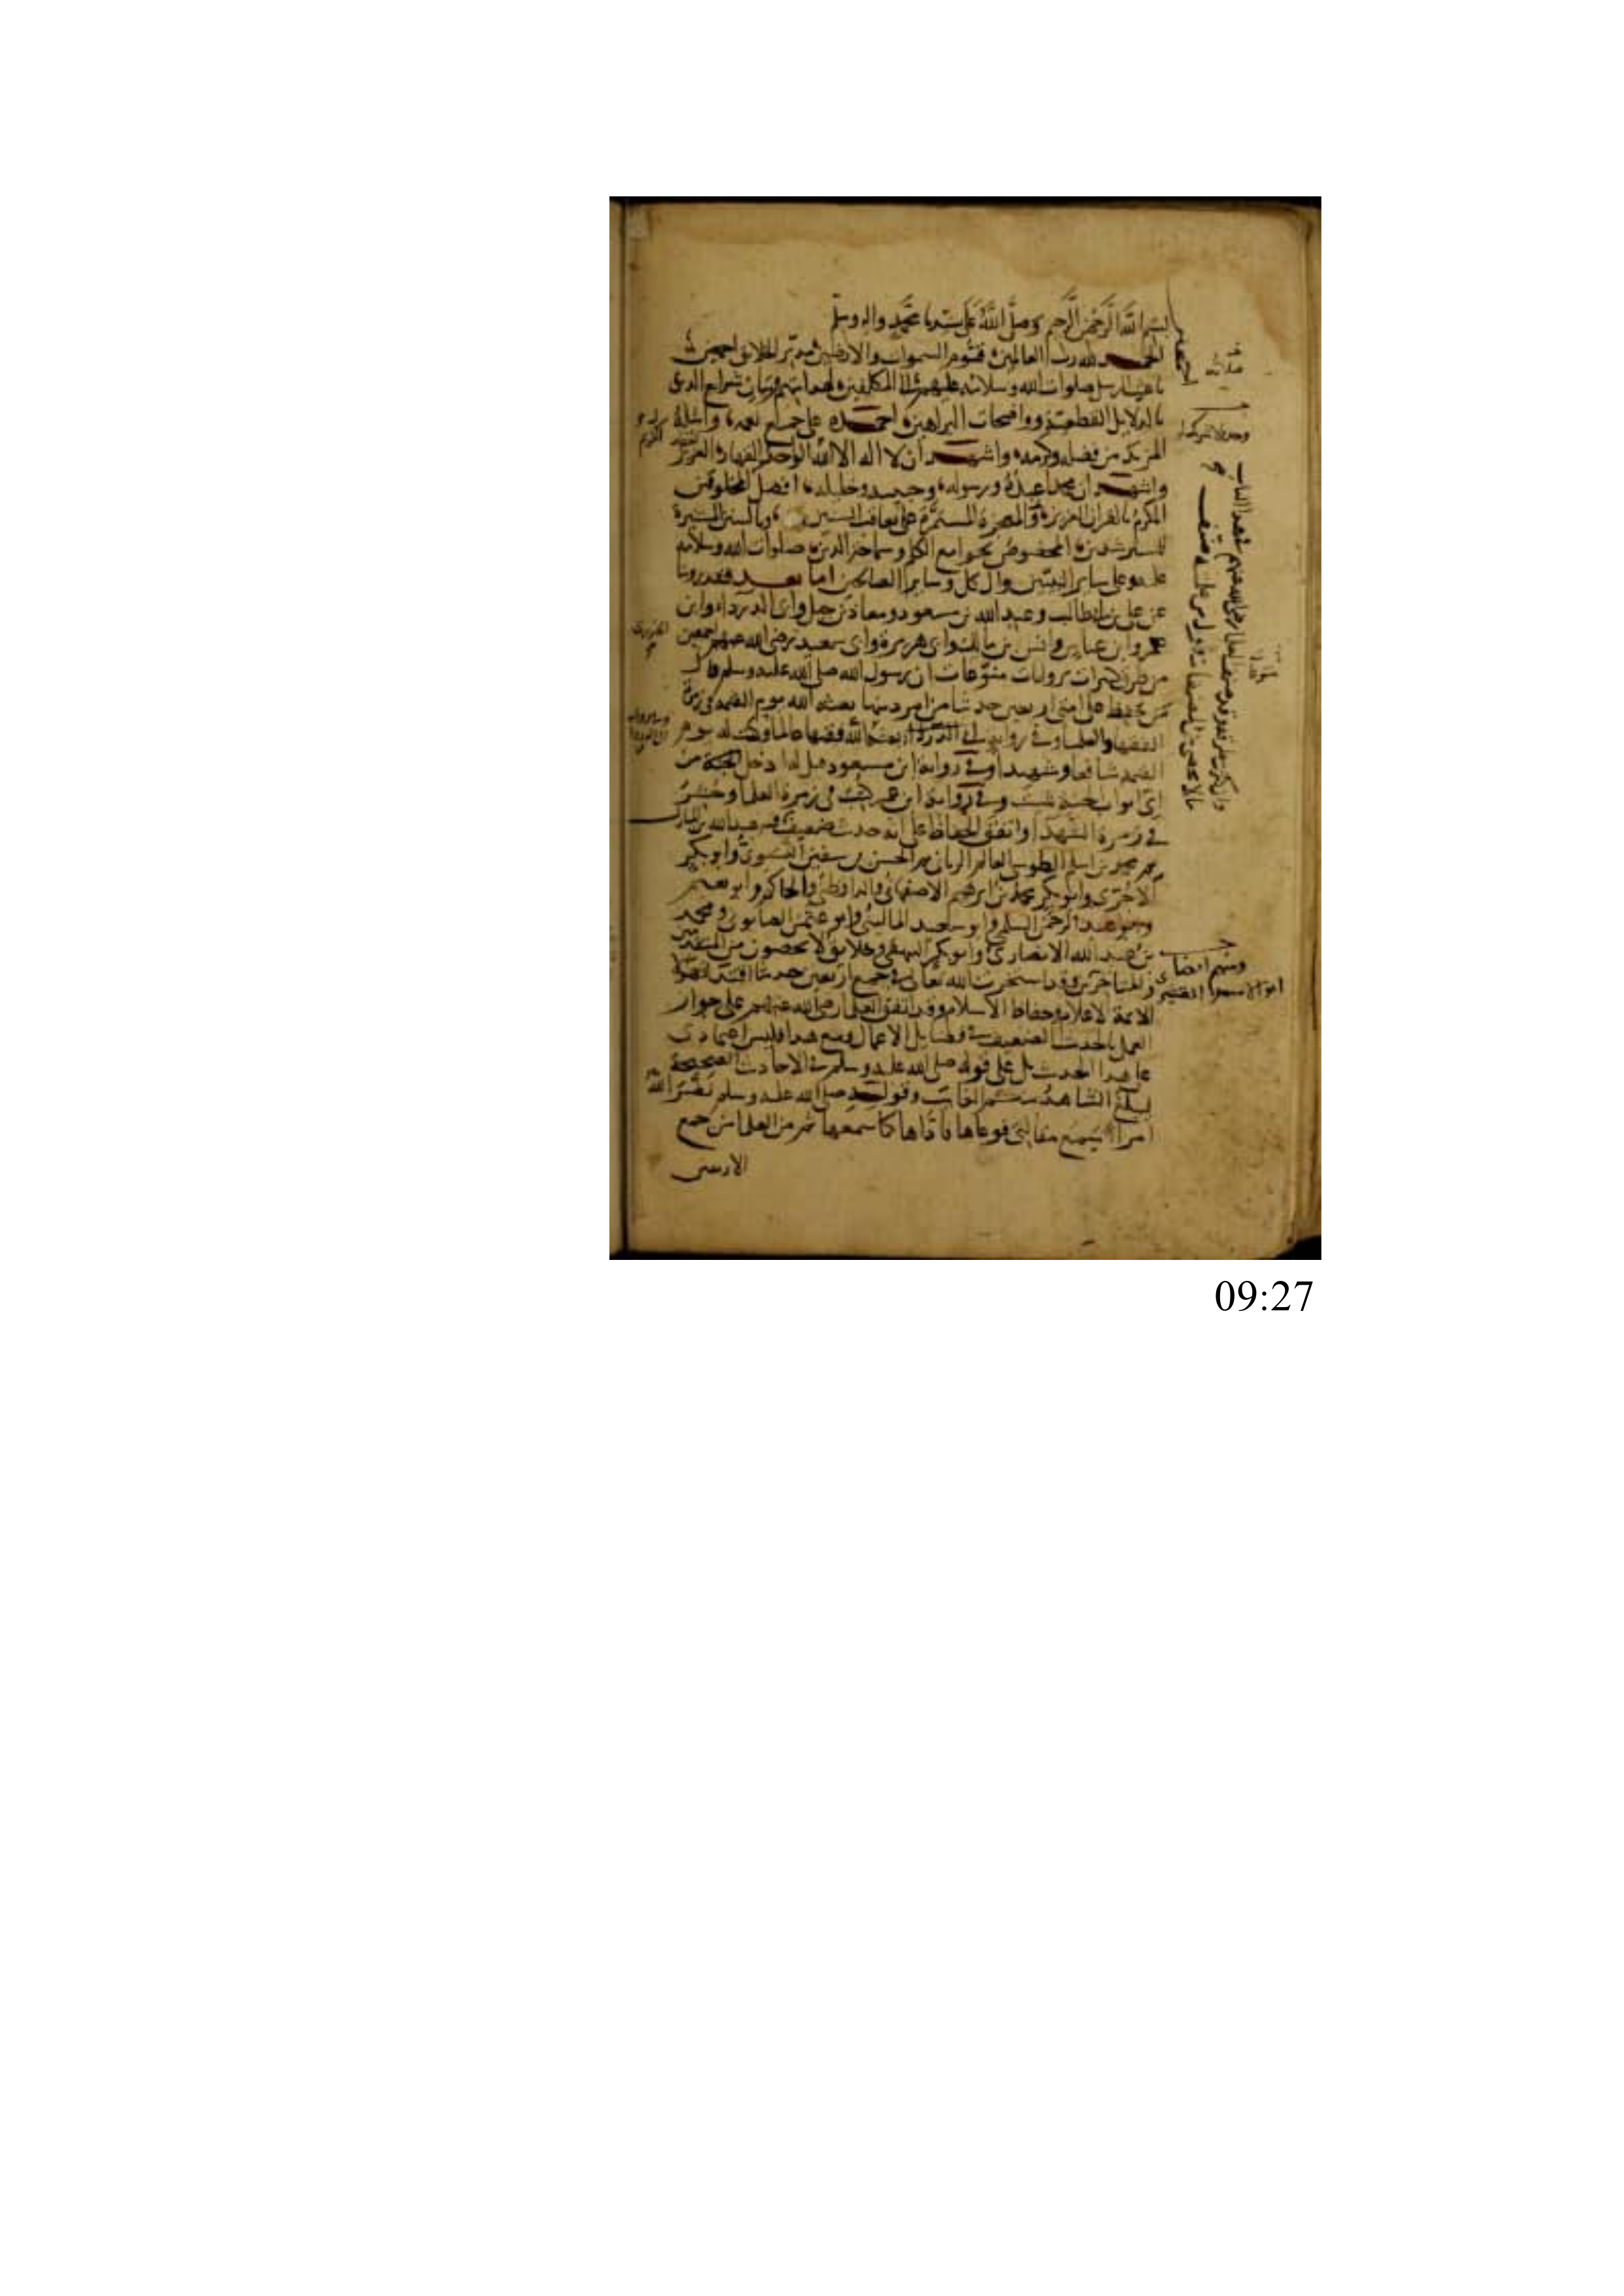 بسم الله الرحمن الرحيم وصلى الله على سيدنا محمد واله وسلم
الحمد لله رب العالمين قيوم السموات والارضين مدبر الخلايق اجمعين
باعث الرسل صلوات الله وسلامه عليهم الى المكلفين لهدايتهم وبيان شرايع الدين
بالدلايل القطعية وواضحات البراهين احمده على جميع نعمه واسئله
المزيد من فضله وكرمه واشهد ان لا اله الا الله الواحد القهار العزيز
واشهد ان محمدا عبده ورسوله وحبيبه وخليله افضل المخلوقين
المكرم بالقران العزيز والمعجزة المستمرة على تعاقب السنين وبالسنن المستنيرة
للمسترشدين المخصوص بجوامع الكلم وسماحة الدين صلوات الله وسلامه
عليه وعلى ساير النبيين وال كل وساير الصالحين اما بعد فقد روينا
عن علي بن ابي طالب وعبد الله بن مسعود ومعاذ بن جبل وابي الدرداء وابن
عمر وابن عباس وانس بن مالك وابي هريرة وابي سعيد رضي الله عنهم اجمعين
من طرق كثيرات بروايات متنوعات ان رسول الله صلى الله عليه وسلم قال
من حفظ على امتي اربعين حديثا من امر دينها بعثه الله يوم القيمة في زمرة
الفقها والعلما وفي رواية ابي الدرداء بعثه الله فقيها عالما وكنت له يوم
القيمة شافعا وشهيدا وفي رواية ابن مسعود قيل له ادخل الجنة من
اي ابواب الجنة شئت وفي رواية ابن عمر كتب في زمرة العلما وحشر
في زمرة الشهدا واتفق الحفاظ على انه حديث ضعيف عبد الله بن المبارك
ثم محمد بن اسلم الطوسي العالم الرباني ثم الحسن بن سفين النسوي وابو بكر
الاجري وابو بكر محمد بن ابرهيم الاصفهاني والدارقطني والحاكم وابو نعيم
وابو عبد الرحمن السلمي وابو سعيد الماليني وابو عثمن الصابوني ومحمد
بن عبد الله الانصاري وابو بكر البيهقي وخلايق لا يحصون من المتقدمين
والمتاخرين وقد استخرت الله تعالى في جمع اربعين حديثا اقتداء بهولاء
الائمة الاعلام وحفاظ الاسلام وقد اتفق العلما رضي الله عنهم على جواز
العمل بالحديث الضعيف في فضايل الاعمال ومع هذا فليس اعتمادي
على هذا الحديث بل على قوله صلى الله عليه وسلم في الاحاديث الصحيحة
ليبلغ الشاهد منكم الغايب وقوله صلى الله عليه وسلم نضر الله
امرا سمع مقالتي فوعاها فاداها كما سمعها ثم من العلما من جمع
الاربعين
ومنهم ايضا
09:27